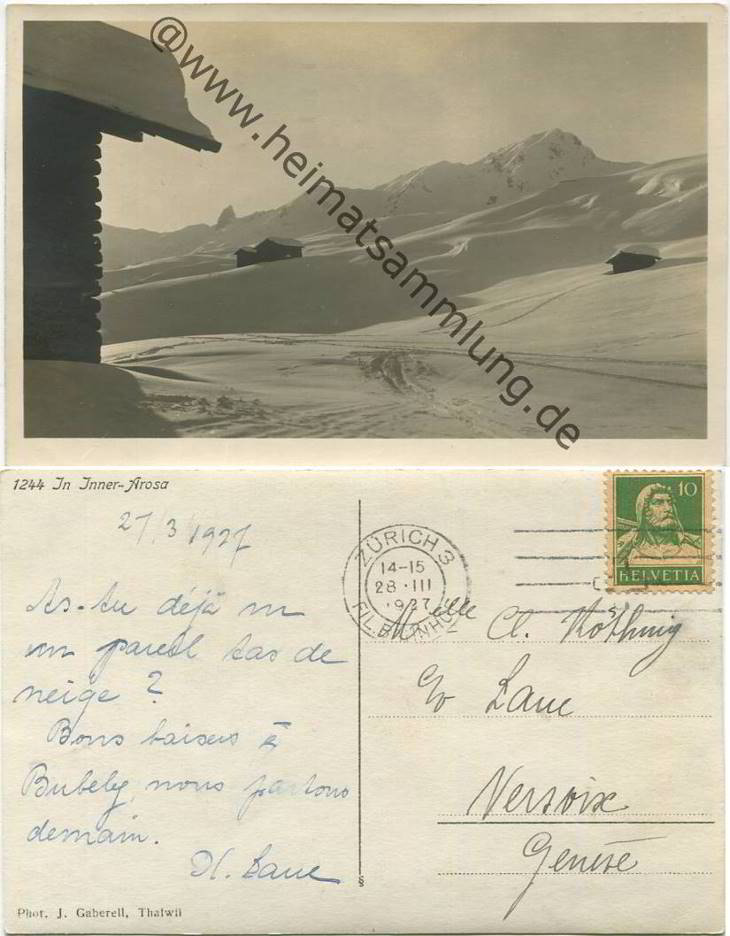 @www.heimatsammlung.de
1244 In Inner-Arosa
27/3/1927
As-tu déjà vu
un pareil tas de
neige ?
Bons baisers à
Bubely, nous partons
demain.
H. Laue
Phot. J. Gaberell, Thalwil
ZÜRICH 3
14-15
28.III
1927
FIL.BAHNHOF
10
HELVETIA
Mlle Cl.
c/o Laue
Versoix
Genève